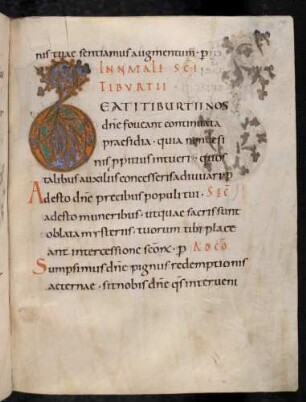 nis tuae sentiamus augmentum · p
IN NAT̄ALI S̄C̄I
TIBURTII
EATI TIBURTII NOS
dn̄e foveant continuata
praesidia · quia non desi
nis propitius intueri · quos
talibus auxiliis concesseris adiuvari · p
Adesto dn̄e precibus populi tui · SEC̄
adesto muneribus · ut quae sacris sunt
oblata mysteriis · tuorum tibi place
ant intercessione sc̄orum · p AD CŌ
Sumpsimus dn̄e pignus redemptionis
aeternae · sit nobis dn̄e qs interveni